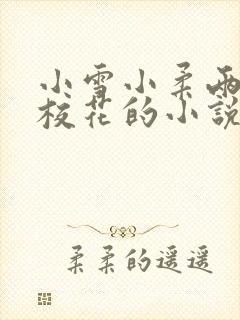 小雪小柔两
校花的小說
柔柔的遥遥